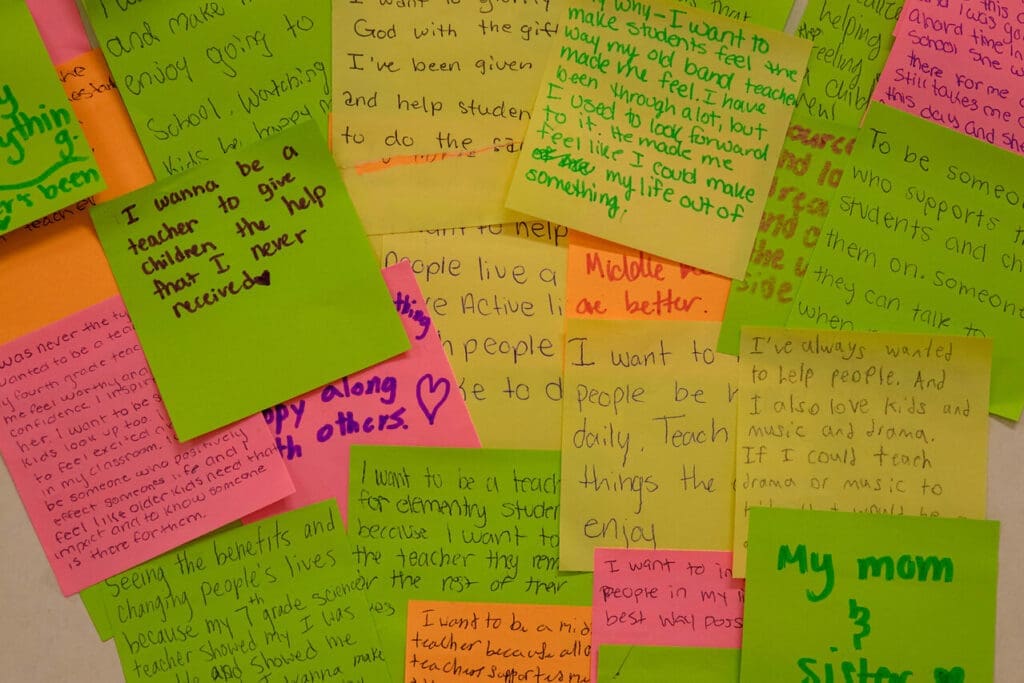 and make
enjoy going to
school. Watching
kids be happy
I want to glorify
God with the gift
I've been given
and help studen
to do the sa
why - I want to
make students feel the
way my old band teacher
made me feel. I have
been through alot, but
I used to look forward
to it. He made me
feel like I could make
my life out of
something.
helping
feeling
child
and I was
a hard time
school she w
there for me
still talks me
this day and she
ythin
g.
r's been
I wanna be a
teacher to give
children the help
that I never
received♥
To be someo
who supports
students and ch
them on. someone
they can talk to
when
ant to help
People live a
ve Active li
n people
ke to d
Middle
are better.
ource
and lo
rea
and
the u
side
was never the ty
wanted to be a tea
My fourth grade teac
me feel worthy and
confidence. I inspir
her. I want to be s
kids look up too.
to feel excited
in my classroom.
be someone who positively
effect someones life and
feel like older kids need that
impact and to know someone
is there for them.
thing
ppy along
th others. ♡
I want to
people be h
daily. Teach
things the
enjoy
I've always wanted
to help people. And
I also love kids and
music and drama.
If I could teach
drama or music to
would be
I want to be a teach
for elementry studen
because I want to
the teacher they rem
or the rest of their
Seeing the benefits and
changing people's lives
because my 7th grade science
teacher showed my I was
He and showed me
I wanna make
I want to be a mid
teacher because all o
teachers supported m
I want to in
people in my l
best way poss
My mom
&
sister ♥